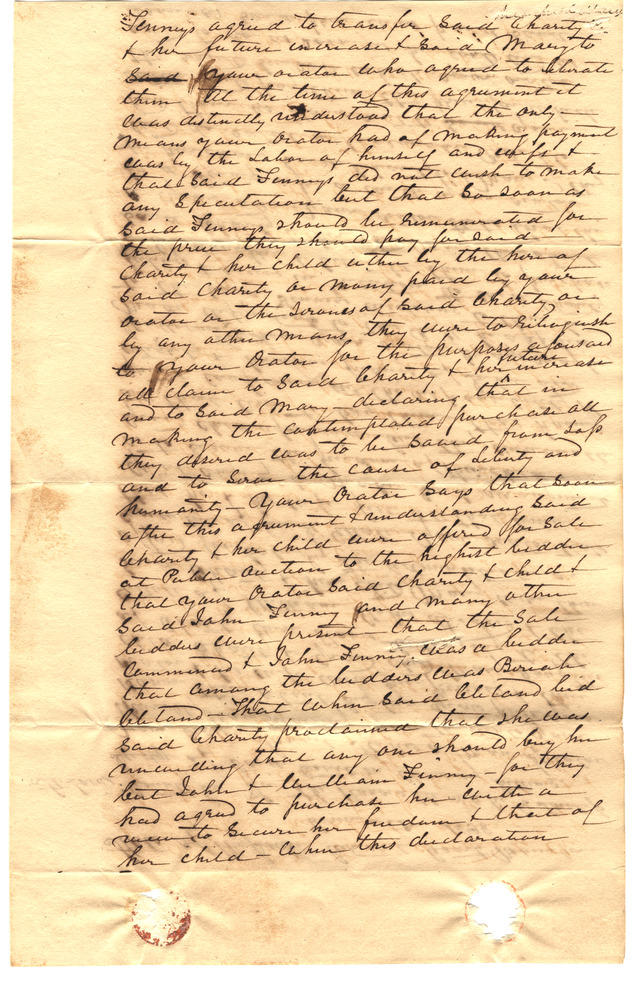 Finneys agreed to transfer said Charity
& her future increase & said Mary to
said your orator who agreed to liberate
them At the time of this agreement it
was distinctly understood that the only
means your orator had of making payment
was by the Labor of himself and wife &
that said Finneys did not wish to make
any Speculation but that So soon as
said Finneys should be remunerated for
the price they should pay for said
Charity & her child either by the hire of
said Charity or money paid by your
orator or the Services of said Charity or
by any other means, they were to relinquish
to your Orator for the purposes aforesaid
future
all claim to said Charity & her increase
and to said Mary declaring that in
making the contemplated purchase all
they desired was to be saved from Loss
and to Serve the cause of Liberty and
humanity – Your Orator Says that Soon
after this agreement & understanding said
Charity & her child were offered for Sale
at Public Auction to the highest bidder
that your Orator said Charity & child &
said John Finney and many other
bidders were present – that the Sale
Commenced & John Finney was a bidder
that among the bidders was Beriah
Cleland – That when said Cleland bid
said Charity proclaimed that she was
unwilling that any one should buy her
but John & William Finney – for they
had agreed to purchase her with a
view to Secure her freedom & that of
her child – When this declaration